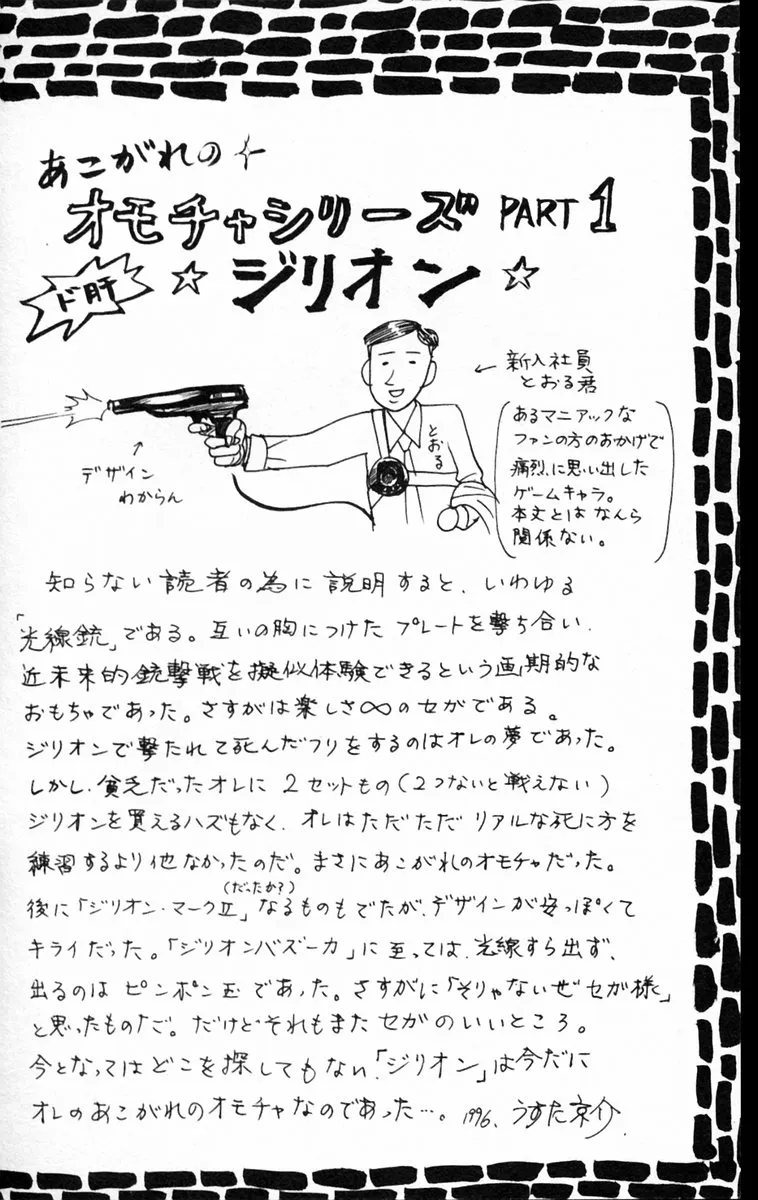 あこがれの
オモチャシリーズ PART 1
ド肝
☆ ジリオン ☆
← 新入社員
とおる君
(あるマニアックな
ファンの方のおかげで
痛烈に思い出した
ゲームキャラ。
本文とはなんら
関係ない。)
とおる
↑
デザイン
わからん
知らない読者の為に説明すると、いわゆる
「光線銃」である。互いの胸につけたプレートを撃ち合い、
近未来的銃撃戦を擬似体験できるという画期的な
おもちゃであった。さすがは楽しさ∞のセガである。
ジリオンで撃たれて死んだフリをするのはオレの夢であった。
しかし、貧乏だったオレに2セットもの(2つないと戦えない)
ジリオンを買えるハズもなく、オレはただただリアルな死に方を
練習するより他なかったのだ。まさにあこがれのオモチャだった。
(だったか?)
後に「ジリオン・マークⅡ」なるものもでたが、デザインが安っぽくて
キライだった。「ジリオンバズーカ」に至っては、光線すら出ず、
出るのはピンポン玉であった。さすがに「そりゃないぜセガ様」
と思ったものだ。だけどそれもまたセガのいいところ。
今となってはどこを探してもない「ジリオン」は今だに
オレのあこがれのオモチャなのであった…。1996、うすた京介.